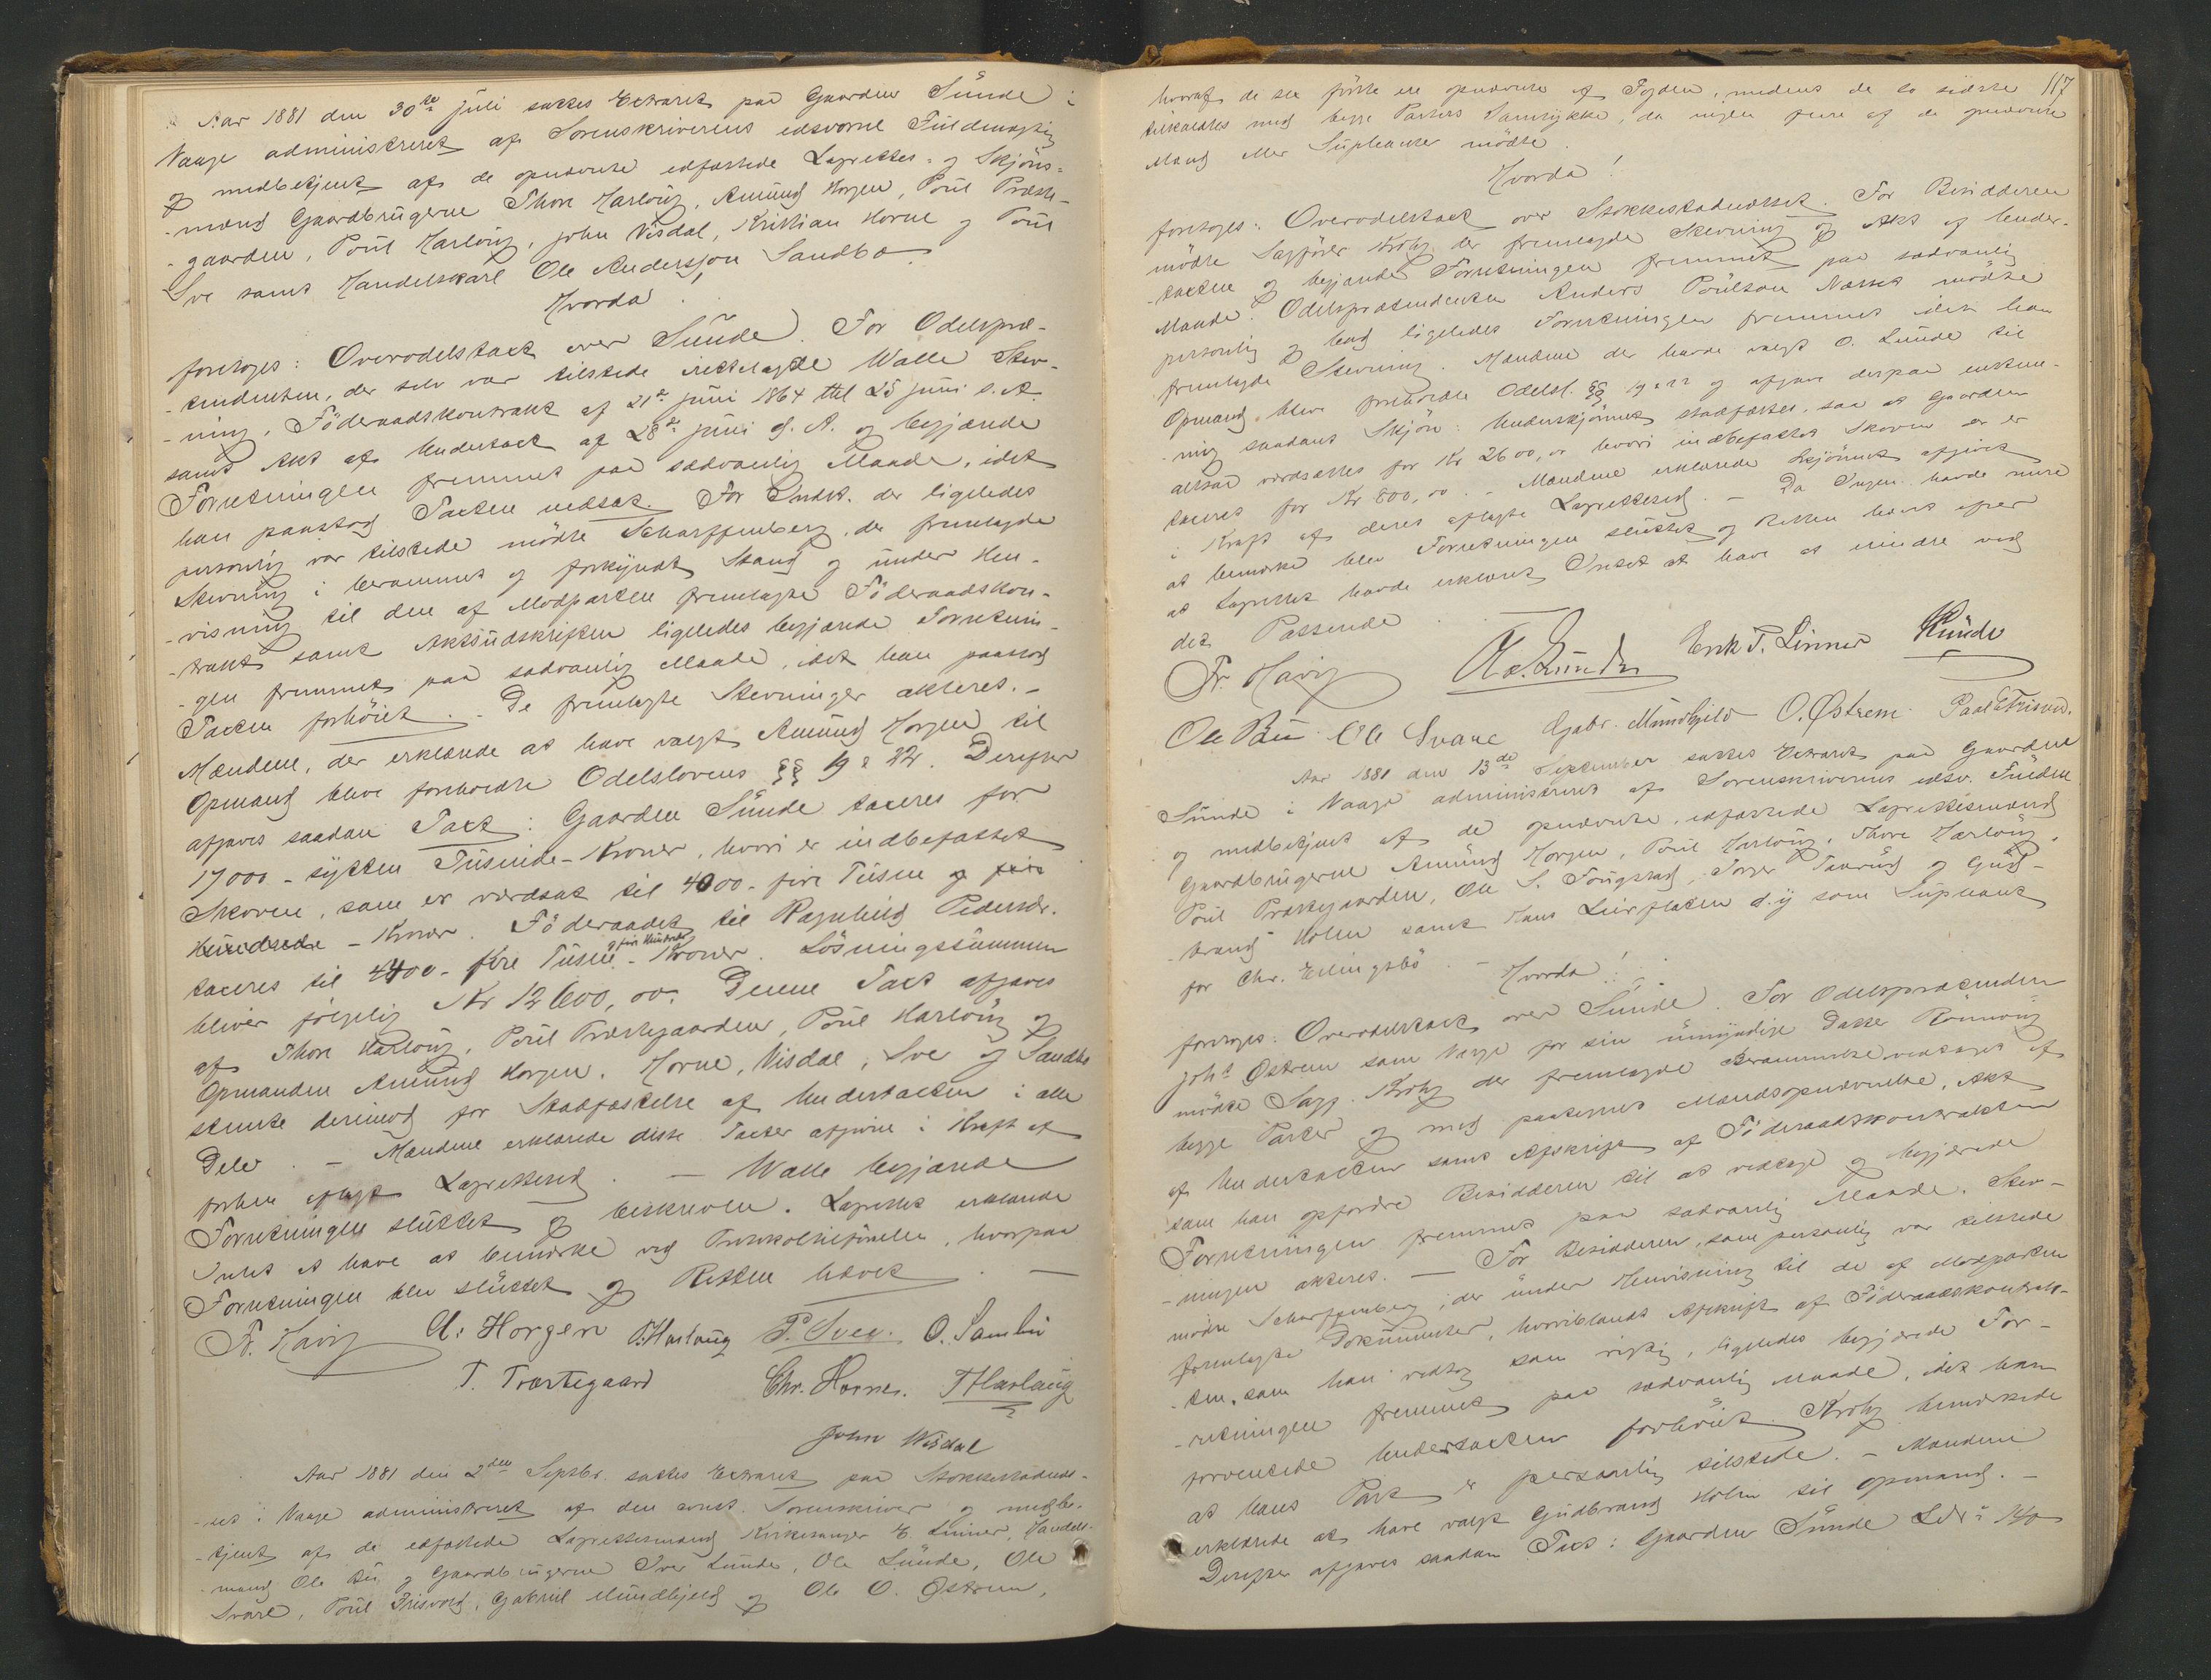 Aar 1881 den 30te Juli sattes Extraret paa Gaarden Sünde i
Vaage administreret af Sorenskriverens edsvorne Fuldmægtig
og medbetjent af de opnævnte edfæstede Lagrettes- og Skjöns-
-mænd Gaardbrugerne Thore Harlaug, Amund Horgen, Poul Præste-
-gaarden, Poul Harlaug, John Visdal, Kristian Horne og Poul
Sve samt Handelskarl Ole Andersjon Sandbo.
Hvorda!
foretoges: Overodelstaxt over Sünde. For Odelspræ-
-tendenten, der selv var tilstede irettelagde Walle Stev-
-ning, Föderaadskontrakt af 21de Juni 1864 thl 25 Juni s. A.
samt Akt af Undertaxt af 28de Juni d. A. og begjærede
Forretningen fremmet paa sædvanlig Maade, idet
han paastod Taxten nedsat. For Indst. der ligeledes
personlig var tilstede mödte Scharffenberg, der fremlagde
Stevning i berammet og forkyndt Stand og under Hen-
-visning til den af Modparten fremlagte Föderaadskon-
-trakt samt Aktsudskriften ligeledes begjærede Forretnin-
-gen fremmet paa sædvanlig Maade, idet han paastod
Taxten forhöiet. - De fremlagte Stevninger akteres. -
Mændene, der erklærede at have valgt Amund Horgen til
Opmand bleve foreholdte Odelslovens §§ 19 & 22. Derefter
afgaves saadan Taxt: Gaarden Sünde taxeres for
17000 - sytten Tusinde - Kroner, hvori er indbefattet
Skoven, som er værdsat til 4000 - fire Tusen og fire
Hundrede - Kroner. Föderaadet til Ragnhild Pedersdr.
taxeres til 4400 - fire Tusen og fire Hundrede - Kroner. Lösningssummen
bliver fölgelig Kr 12,600,00. Denne Taxt afgaves
af Thore Harlaug, Poul Præstegaarden, Poul Harlaug og
Opmanden Amund Horgen. Horne, Visdal, Sve og Sandbo
stemte derimod for Stadfæstelse af Undertaxten i alle
Dele. - Mændene erklærede disse Taxter afgivne i Kraft af
forhen aflagt Lagrettesed. - Walle begjærede
Forretningen sluttet og beskreven. Lagrettet erklærede
Intet at have at bemærke ved Protokoltilförselen, hvorpaa
Forretningen blev sluttet og Retten hævet. -
Fr. Havig A. Horgen P. Harlaug P. Sve O. Sandbu
P. Præstegaard Chr. Horne. T Harlaug
John Wisdal
Aar 1881 den 2den Septbr. sattes Extraret paa Stokkestadnæs-
-set i Vaage administreret af den const. Sorenskriver og medbe-
-tjent af de edfæstede Lagrettesmænd Kirkesanger E. Linner, Handels-
-mand Ole Bu og Gaardbrugerne Iver Sunde, Ole Sünde, Ole
Svare, Poul Frisvold, Gabriel Mundhjeld og Ole O. Östrem,
117
hvoraf de sex förste ere opnævnte af Fogden, medens de to sidste
tilkaldtes med begge Parters Samtykke, da ingen flere af de opnævnte
Mænd eller Supleanter mödte.
Hvorda!
foretoges: Overodelstaxt over Stokkestadnæsset. For Besidderen
mödte Sagförer Krohg der fremlagde Stevning og Akt af Under-
-taxten og begjærede Forretningen fremmet paa sædvanlig
Maade. Odelsprætendenten Anders Poulsen Næsset mödte
personlig og bad ligeledes Forretningen fremmet idet han
fremlagde Stevning. Mændene der havde valgt O. Sunde til
Opmand bleve foreholdte Odelsl. §§ 19 & 22 og afgav derpaa enstem-
-mig saadant Skjön: Underskjönnet stadfæstes, saa at Gaarden
altsaa værdsættes for Kr 2600,00 hvori indbefattet Skoven der er
taxeret for Kr 800,00. - Mændene erklærede Skjönnet afgivet
i Kraft af deres aflagte Lagrettesed. - Da Ingen havde mere
at bemærke blev Forretningen sluttet og Retten hævet efter
at Lagrettet havde erklæret Intet at have at erindre ved
det Passerede.
Fr. Havig O. Sunde Erik T. Linner Sünde
Ole Bu Ole Svare Gabr. Mundhjeld O. Østrem Paal E Frisvold.
Aar 1881 den 13de September sattes Extraret paa Gaarden
Sünde i Vaage administreret af Sorenskriverens edsv. Fuldm.
og medbetjent af de opnævnte, edfæstede Lagrettesmænd
Gaardbrugerne Amund Horgen, Poul Harlaug, Thore Harlaug,
Poul Præstegaarden, Ole S. Fougstad, Torger Taarud og Gud-
-brand Holen samt Hans Leirflaten d. y som Supleant
for Chr. Erlingsbö. - Hvorda!
foretoges: Overodelstaxt over Sünde. For Odelsprætendenten
Johs Östrem som Værge for sin umyndige Datter Rönnoug
mödte Sagf. Krohg der fremlagde Berammelse vedtaget af
begge Parter og med paategnet Mændsopnævnelse, Akt
af Undertaxten samt Afskrift af Föderaadskontrakten
som han opfordre Besidderen til at vedtage og begjærede
Forretningen fremmet paa sædvanlig Maade. Stev-
-ningen akteres. - For Besidderen, som personlig var tilstede
mödte Scharffenberg, der under Henvisning til de af Modparten
fremlagte Dokumenter, hvoriblandt Afskrift af Föderaadskontrak-
-ten, som han vedtog som rigtig, ligeledes begjærede For-
-retningen fremmet paa sædvanlig Maade, idet han
forventede Undertaxten forhöiet. Krohg bemærkede
at hans Part er personlig tilstede. - Mændene
erklærede at have valgt Gudbrand Holen til Opmand. -
Derefter afgaves saadan Taxt: Gaarden Sünde Lbr: 140